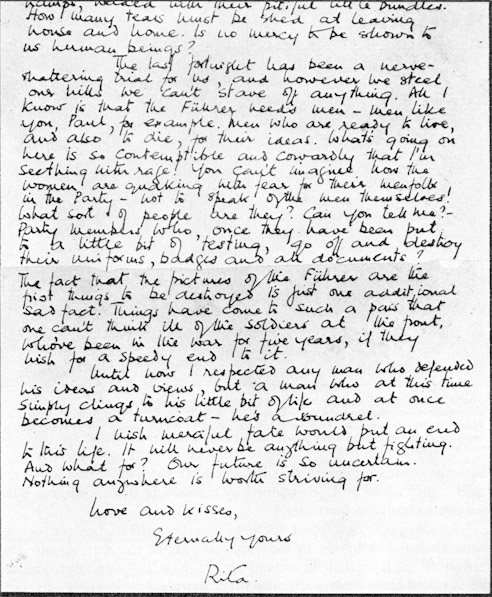 tramps, loaded with their pitiful little bundles.
How many tears must be shed at leaving
house and home. Is no mercy to be shown to
us human beings?
The last fortnight has been a nerve-
shattering trial for us, and however we steel
our wills we can't stave off anything. All I
know is that the Führer needs men – men like
you, Paul, for example. Men who are ready to live,
and also to die, for their ideas. What's going on
here is so contemptible and cowardly that I'm
seething with rage! You can't imagine how the
women are quaking with fear for their menfolk
in the Party – not to speak of the men themselves!
What sort of people are they? Can you tell me? –
Party members who, once they have been put
to a little bit of testing, go off and destroy
their uniforms, badges and all documents?
The fact that the pictures of the Führer are the
first things to be destroyed is just one additional
sad fact. Things have come to such a pass that
one can't think ill of the soldiers at the front,
who've been in the war for five years, if they
wish for a speedy end to it.
Until now I respected any man who defended
his ideas and views, but a man who at this time
simply clings to his little bit of life and at once
becomes a turncoat – he's a scoundrel.
I wish merciful fate would put an end
to this life. It will never be anything but fighting.
And what for? Our future is so uncertain.
Nothing anywhere is worth striving for.
Love and kisses,
Eternally yours
Rita.